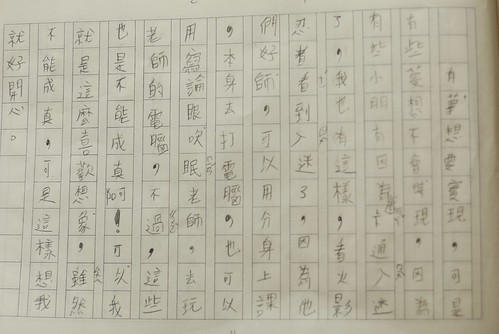 有夢想要實現，可是
有些夢想不會實現，因為
有些小朋有因為卡通入迷
了，我也有這樣，看火影
忍者看到入迷了，因為他
們好師，可以用分身上課
，本身去打電腦，也可以
用寫論眼吹眠老師，去玩
老師的電腦不過，這些
也是不能成真啊！可以我
就是這麼喜歡想象，雖然
不能成真，可是這樣想我
就好開心。